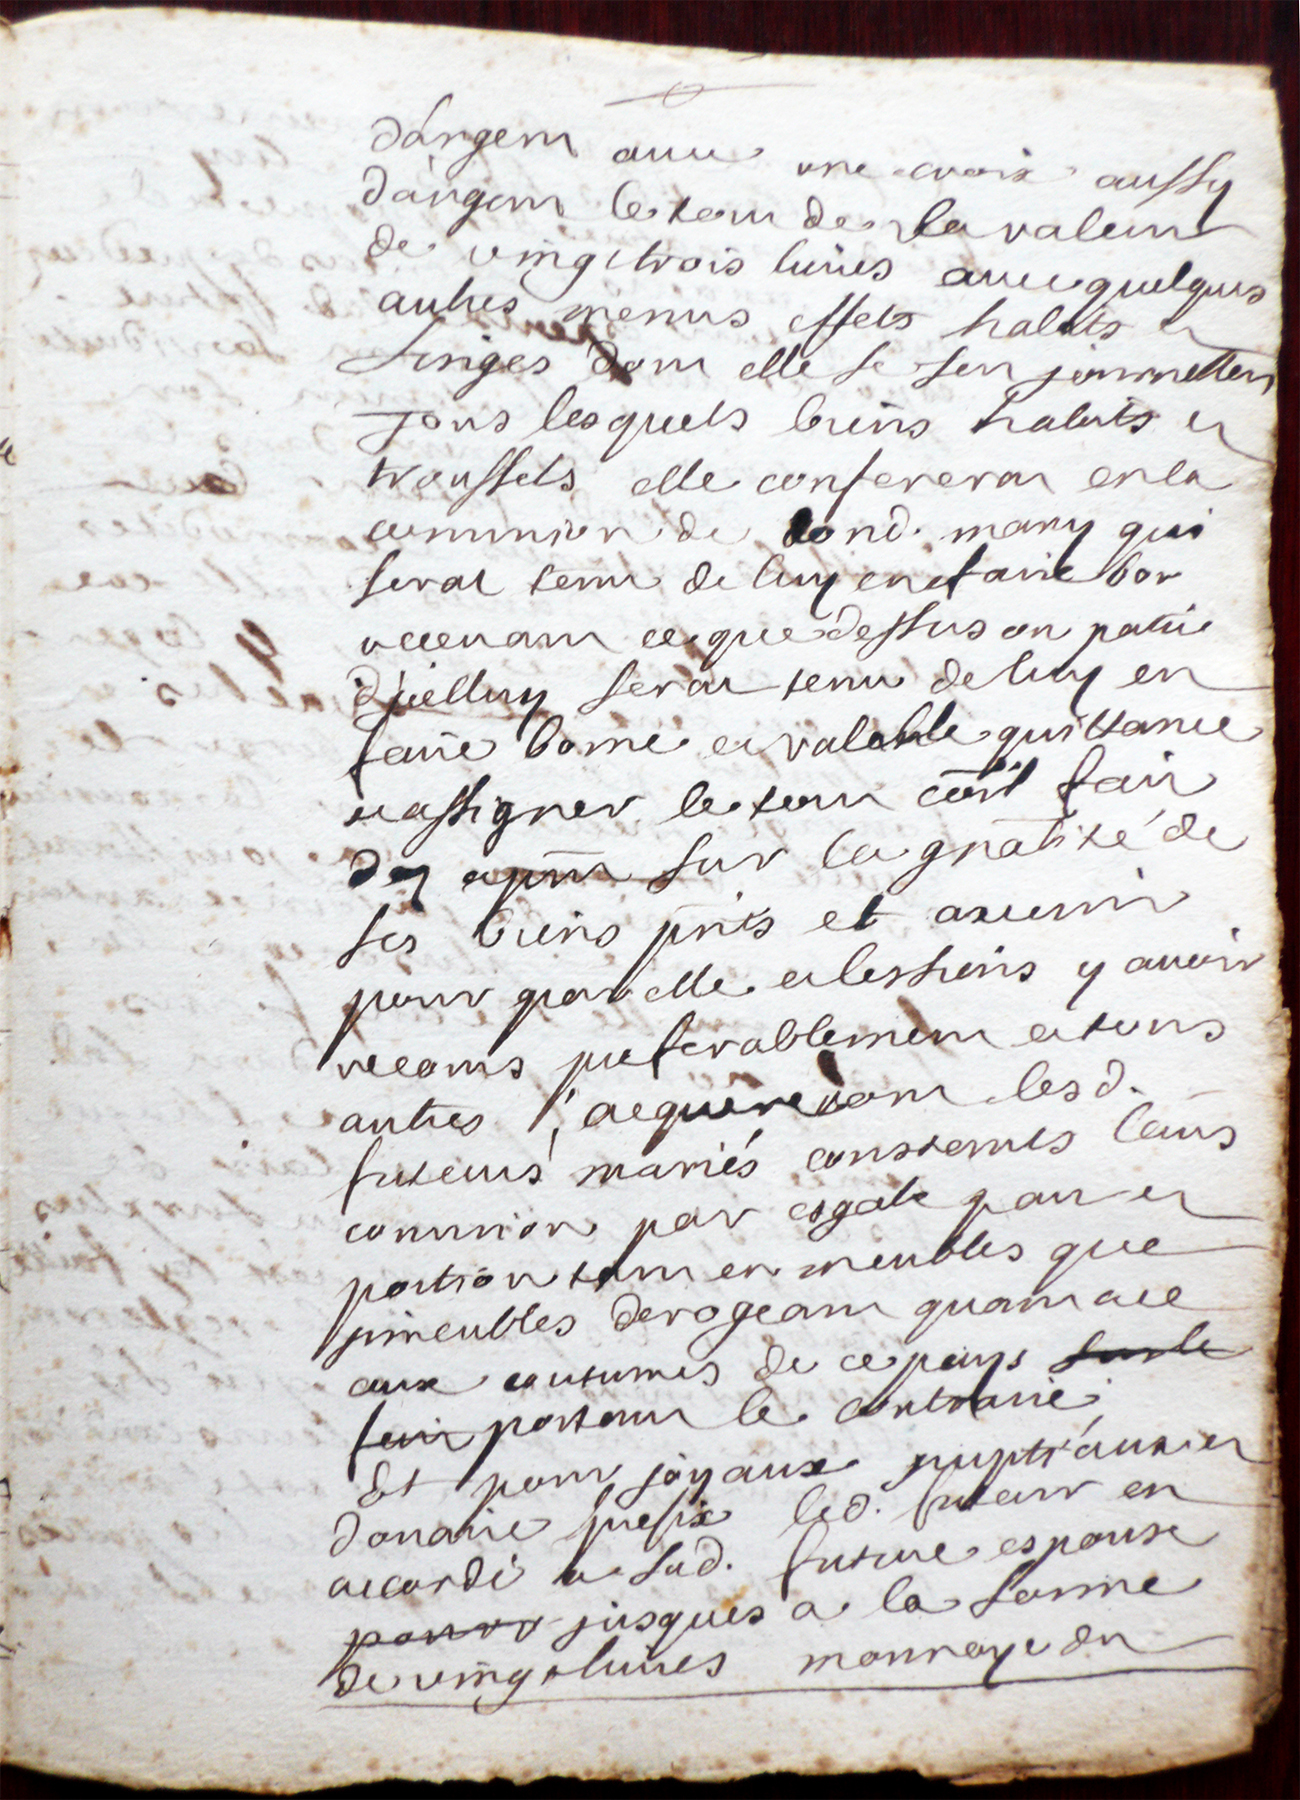 d'argent avec une croix aussy
d'argent le tout de la valeur
de vingt trois livres avec quelques
autres menus effets habits et
linges dont elle se sert journellem
tous lesquels biens habits et
troussels elle conferera en la
communion de sond. mary qui
serat tenu de luy en faire bon
recevant ce que dessus ou partie
d'jcelluy serat tenu de luy en
faire bonne et valable quittance
et assigner le tout coe il fait
dez apnt sur la gnalité de
ses biens pnts et avenir
pour par elle et les siens y avoir
recours preferablement a tous
autres ; acquereront lesd.
futeurs mariés constemts leurs
communion par esgale part et
portion tant en meubles que
jmeubles derogeant quant a ce
aux coutumes de ce pays
portant le contraire
Et pour joyaux nuptiaux et
donaire prefix led. futeur en
accorde a sad. future espouse
jusques a la somme
de vingt livres monnoye du